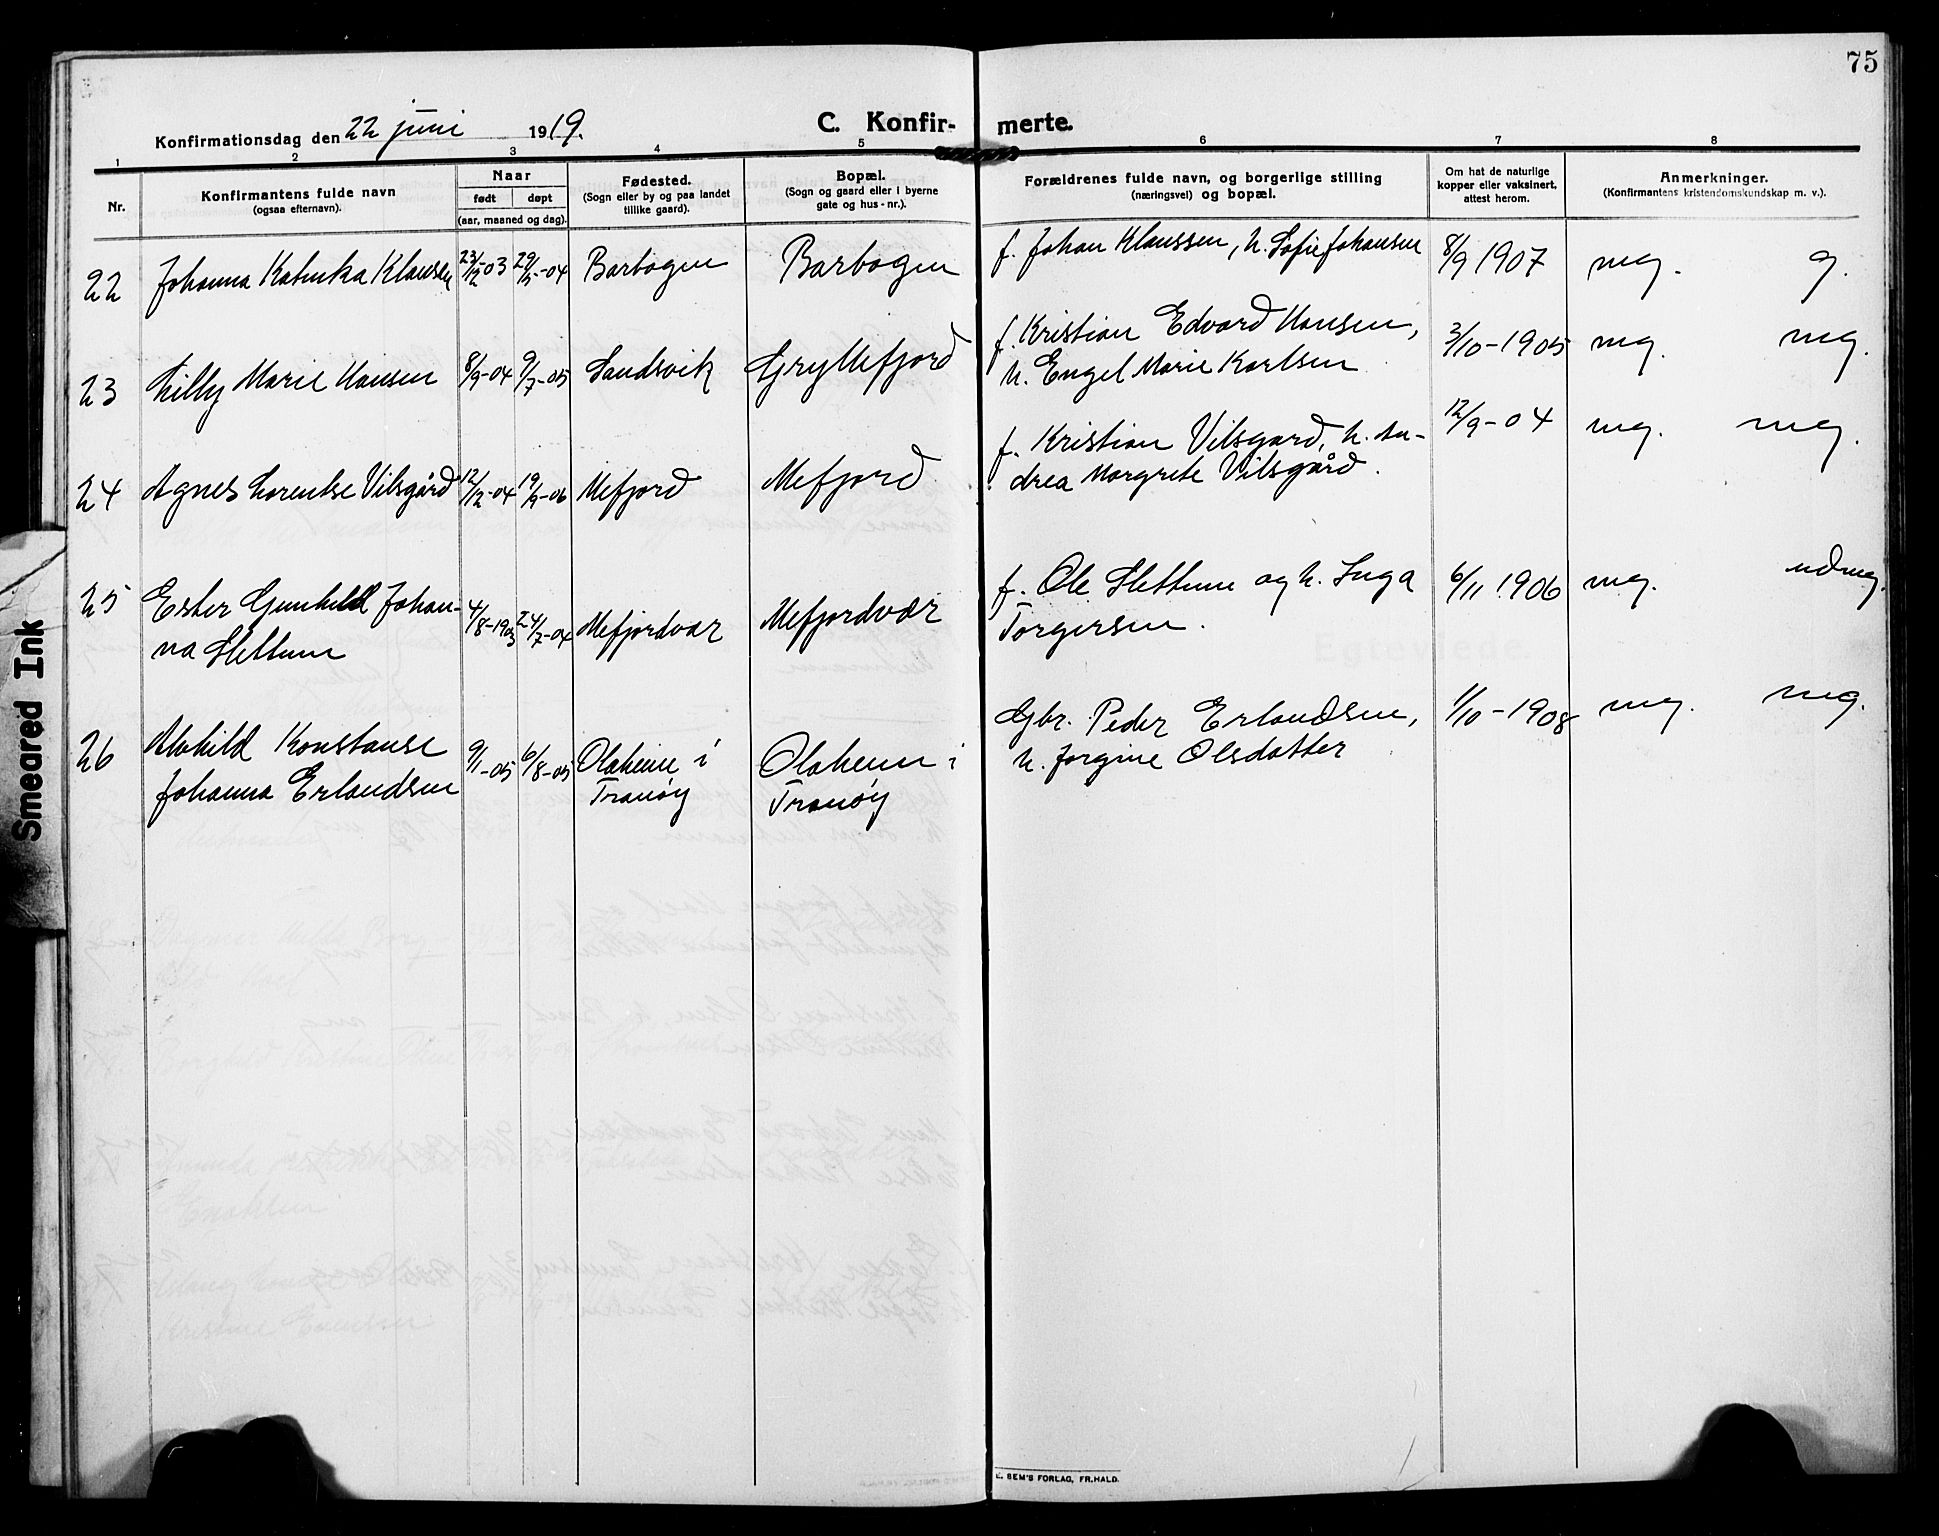 75
Konfirmationsdag den 22 juni 1919.
C. Konfir- merte.
1 2 3 4 5 6 7 8
Nr.
Konfirmantens fulde navn
(ogsaa efternavn).
Naar
født døpt
(aar, maaned og dag).
Fødested.
(Sogn eller by og paa landet
tillike gaard).
Bopæl.
(Sogn og gaard eller i byerne
gate og hus-nr.).
Forældrenes fulde navn, og borgerlige stilling
(næringsvei) og bopæl.
Om hat de naturlige
kopper eller vaksinert,
attest herom.
Anmerkninger.
(Konfirmantens kristendomskundskap m. v.).
22 Johanna Katinka Klausen 23/12-03 29/5-04 Barbogen Barbogen f. Johan Klaussen, h. Sofie Johansen 8/9 1907 mg. g.
23 Lilly Marie Hansen 8/9-04 9/7-05 Sandsvik Gryllefjord f. Kristian Edvard Hansen,
h. Engel Marie Karlsen 3/10-1905 mg. mg.
24 Agnes Lorentse Vilsgård 12/12-04 19/9-06 Mefjord Mefjord f. Kristian Vilsgard, h. An-
drea Margrete Vilsgård. 12/9-04 mg. mg.
25 Ester Gunhild Johan-
na Slettum 4/8-1903 24/7-04 Mefjordvær Mefjordvær f. Ole Slettum og h. Inga
Torgersen. 6/11 1906 mg. udmg.
26 Alvhild Konstanse
Johanna Erlandsen 9/1-05 6/8-05 Olaheim i
Tranøy Olaheim i
Tranøy Gbr. Peder Erlandsen,
h. Jorgine Olsdatter 1/10-1908 mg. mg.
Smeared Ink
E. SEM'S FORLAG, FR.HALD.